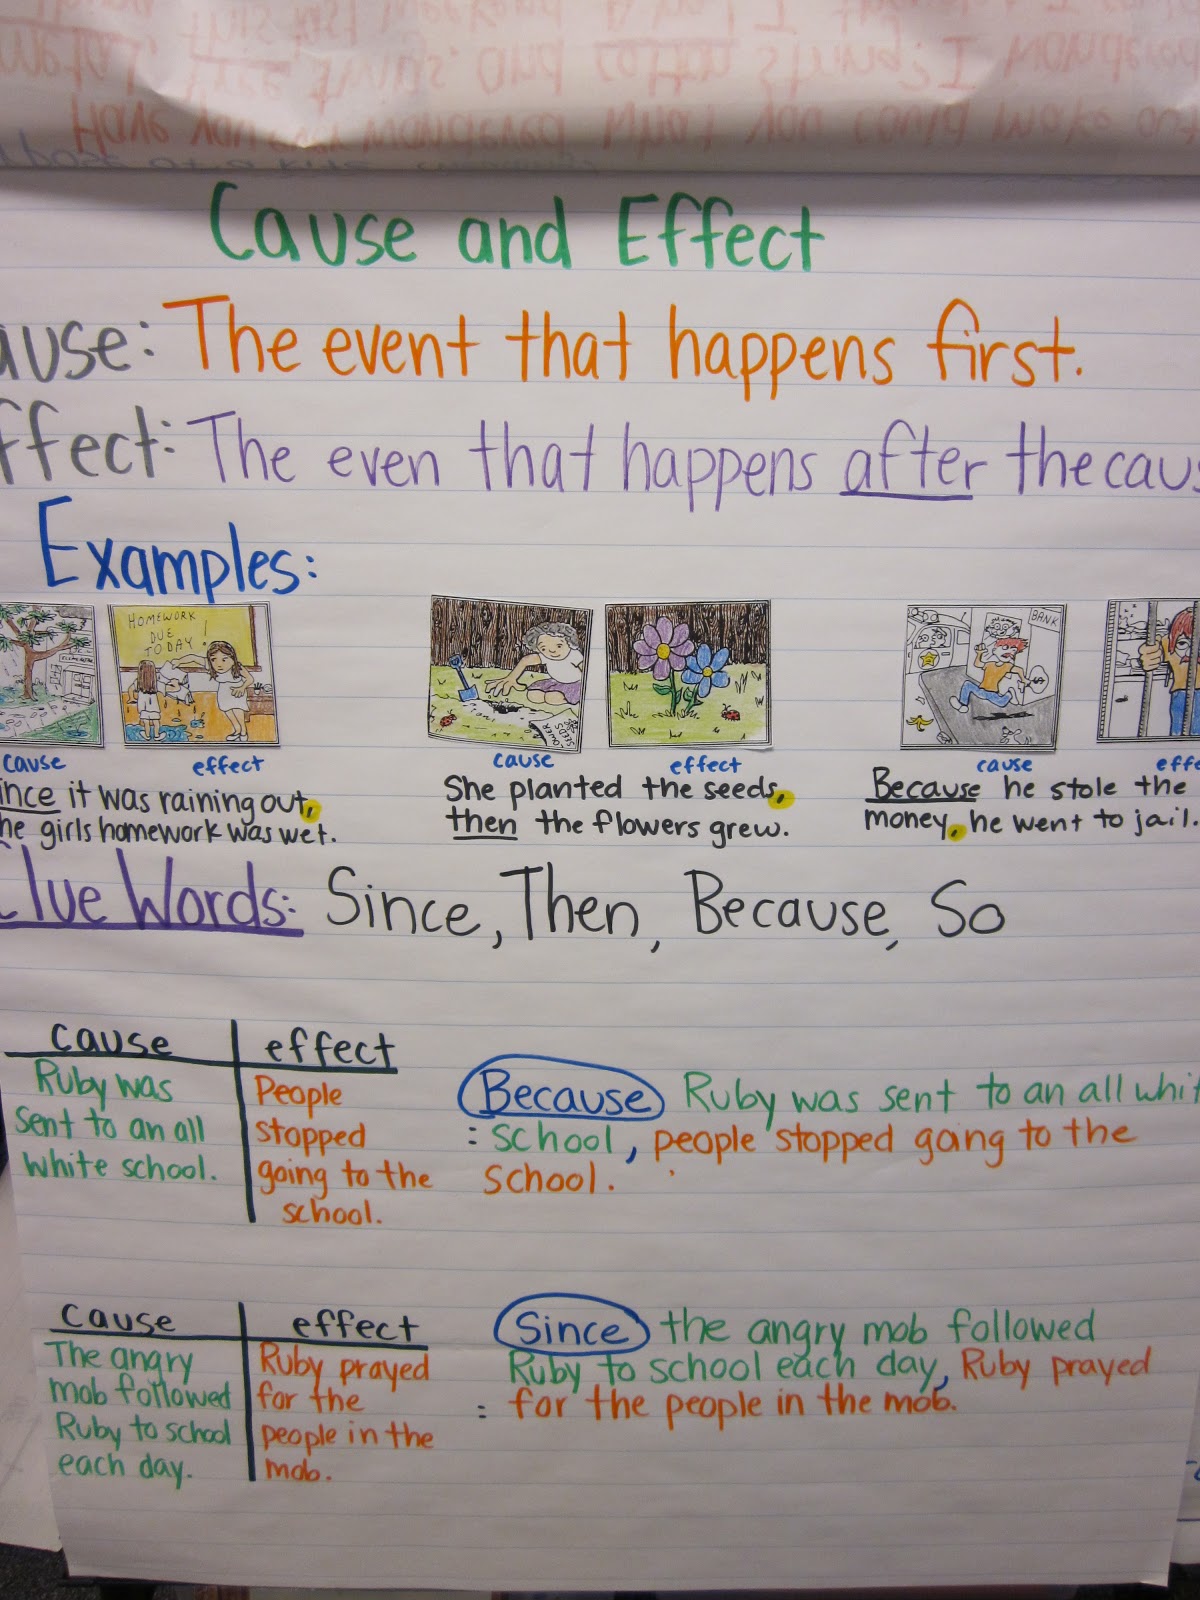 Cause and Effect
ause: The event that happens first.
ffect: The even that happens after the caus
Examples:
HOMEWORK
DUE
TODAY!
BANK
SEEDS
cause effect
ince it was raining out,
he girls homework was wet.
cause effect
She planted the seeds,
then the flowers grew.
cause effe
Because he stole the
money, he went to jail.
Clue Words: Since, Then, Because, So
cause effect
Ruby was
sent to an all
white school.
People
stopped
going to the
school.
Because Ruby was sent to an all whit
: school, people stopped going to the
school.
cause effect
The angry
mob followed
Ruby to school
each day.
Ruby prayed
for the
people in the
mob.
Since the angry mob followed
Ruby to school each day, Ruby prayed
: for the people in the mob.